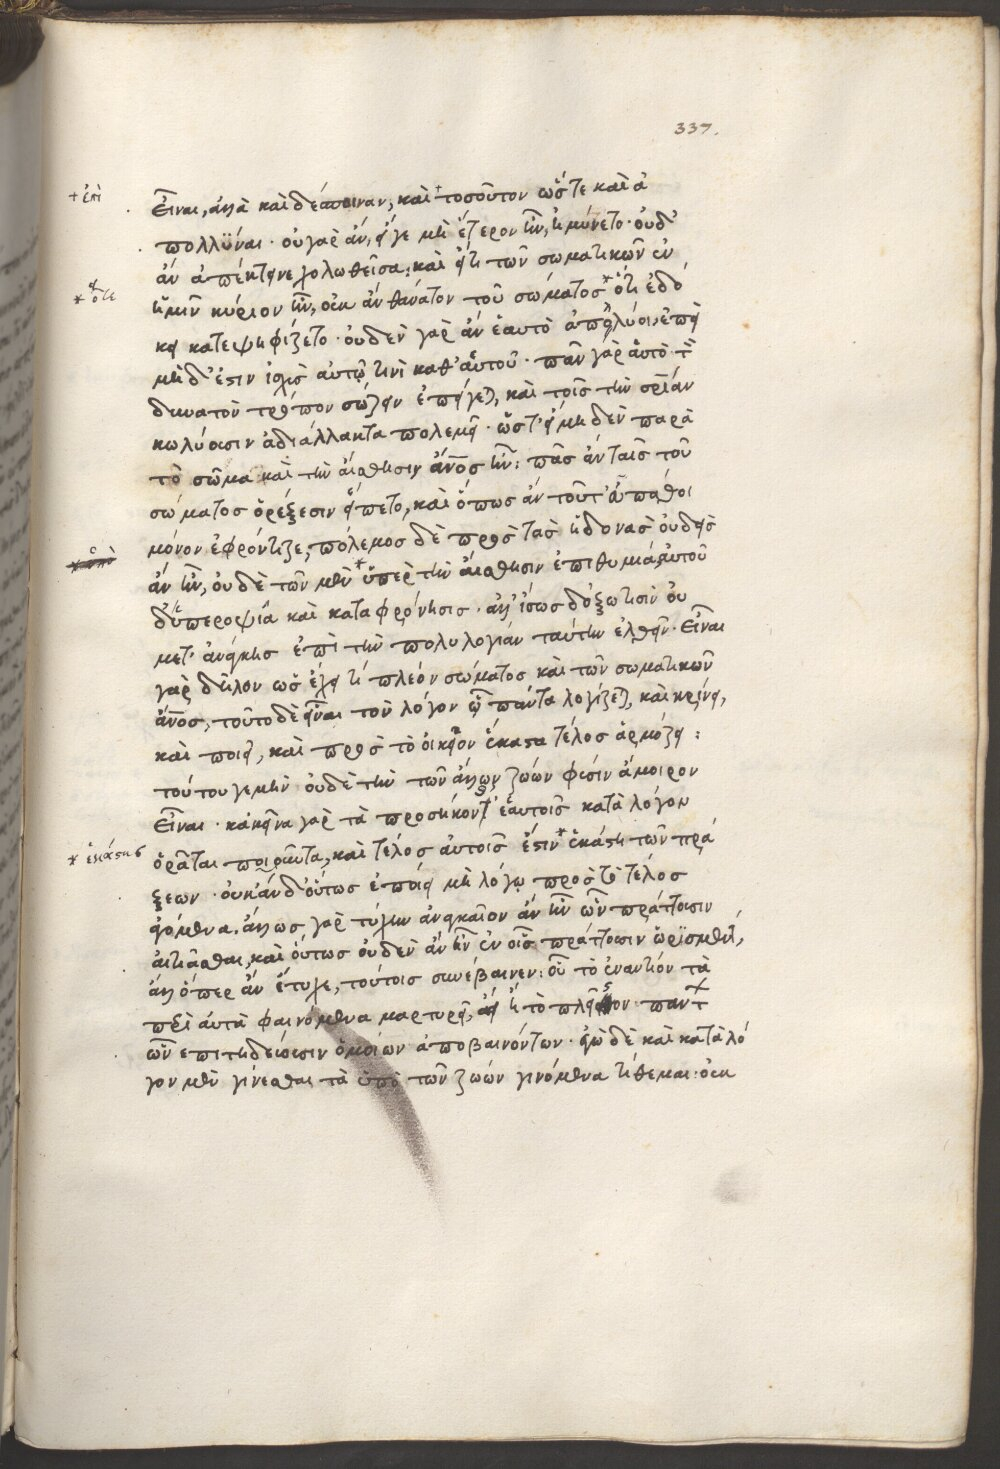 337.
+ ἐπὶ
εἶναι, ἀλλὰ καὶ δέσποιναν, καὶ + τοσοῦτον ὥστε καὶ ἀ
πολλύναι · οὐ γὰρ ἂν, εἴγε μὴ ἕτερον ἦν, ἠμύνετο · οὐδ'
ἂν ἀπέκτεινε χολωθεῖσα : καὶ εἴ τι τῶν σωματικῶν ἐν
* ὅτε
ἡμῖν κύριον ἦν, οὐκ ἂν θάνατον τοῦ σώματος * ὅτι ἐδό
κει κατεψηφίζετο · οὐδὲν γὰρ ἂν ἑαυτὸ ἀπολύοι, ἐπεὶ
μὴδ' ἔστιν ἰσχὺς αὐτῷ τινὶ καθ' αὑτοῦ · πᾶν γὰρ ἑαυτὸ τὸν
δυνατὸν τρόπον σώζειν ἐπείγεται, καὶ τοῖς τὴν σωτηρίαν
κωλύουσιν ἀδιάλλακτα πολεμεῖ · ὥστ' εἰ μηδὲν παρὰ
τὸ σῶμα καὶ τὴν αἴσθησιν ἄνθρωπος ἦν : πᾶς ἂν ταῖς τοῦ
σώματος ὀρέξεσιν εἵπετο, καὶ ὅπως ἂν τοῦτ' εὐπαθοῖ
μόνον ἐφρόντιζε, πόλεμος δὲ πρὸς τὰς ἡδονὰς οὐδεὶς
ἂν ἦν, οὐδὲ τῶν μὲν * ὑπὲρ τὴν αἴσθησιν ἐπιθυμία, αὐτοῦ
δ' ὑπεροψία καὶ καταφρόνησις · ἀλλ' ἴσως δόξω τισὶν οὐ
μετ' ἀνάγκης ἐπὶ τὴν πολυλογίαν ταύτην ἐλθεῖν · εἶναι
γὰρ δῆλον ὡς ἔχει τι πλέον σώματος καὶ τῶν σωματικῶν
ἄνθρωπος, τοῦτο δὲ εἶναι τὸν λόγον ᾧ πάντα λογίζεται, καὶ κρίνει,
καὶ ποιεῖ, καὶ πρὸς τὸ οἰκεῖον ἕκαστα τέλος ἁρμόζει :
τούτου γε μὴν οὐδὲ τὴν τῶν ἄλλων ζώων φύσιν ἄμοιρον
εἶναι · κἀκεῖνα γὰρ τὰ προσήκονθ' ἑαυτοῖς κατὰ λόγον
* ἑκάστης
ὁρᾶται ποιοῦντα, καὶ τέλος αὐτοῖς ἔστιν * ἑκάστη τῶν πρά
ξεων · οὐκ ἂν δ' οὕτως ἐποίει μὴ λόγῳ πρὸς τὸ τέλος
ἀγόμενα. ἄλλως γὰρ τύχην ἀναγκαῖον ἂν ἦν ὧν πράττουσιν
αἰτιᾶσθαι, καὶ οὕτως οὐδὲν ἂν ἦν ἐν οἷς πράττουσιν ὡρισμένον,
ἀλλ' ὅπερ ἂν ἔτυχε, τούτοις συνέβαινεν : οὗ τὸ ἐναντίον τὰ
περὶ αὐτὰ φαινόμενα μαρτυρεῖ, ἀεὶ ἢ τὸ πλεῖστον πάντων
ὧν ἐπιτηδεύουσιν ὁμοίων ἀποβαινόντων · ἐγὼ δὲ καὶ κατὰ λό
γον μὲν γίνεσθαι τὰ ὑπὸ τῶν ζώων γινόμενα τίθεμαι : οὐκ